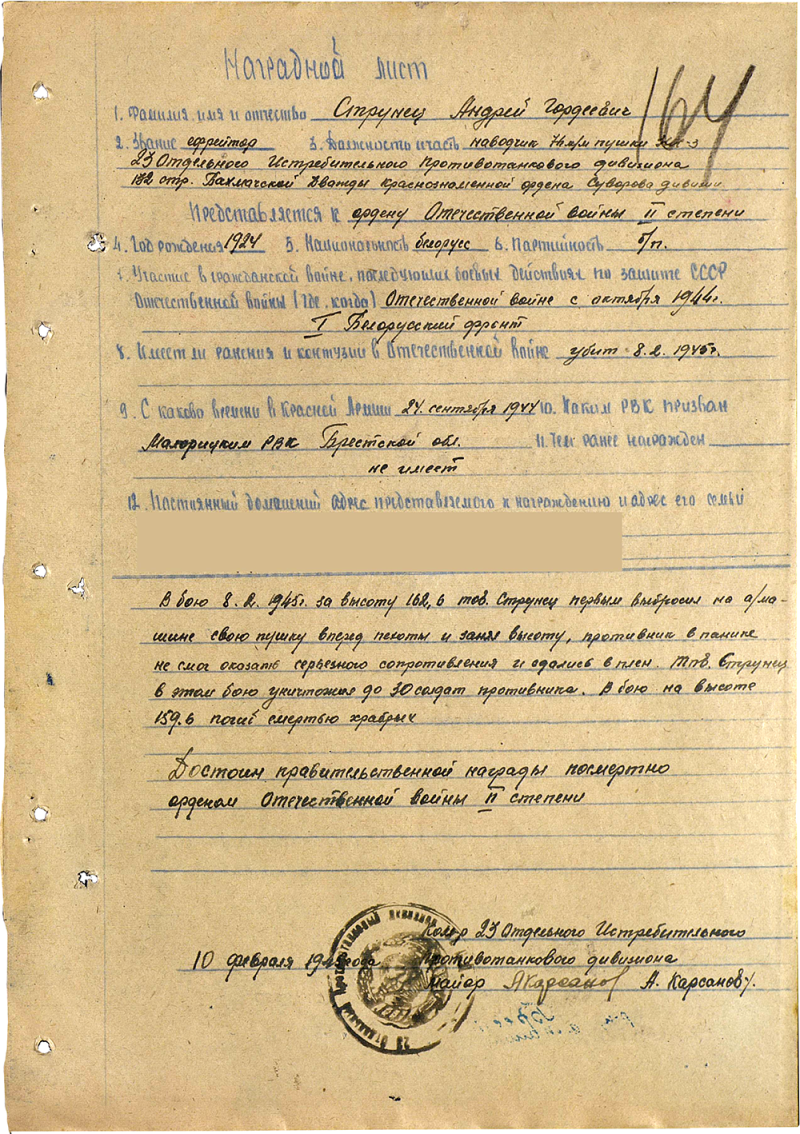 Наградной лист
164
1. Фамилия, имя и отчество Струнец Андрей Гордеевич
2. Звание ефрейтор 3. Должность и часть наводчик 76 м/м пушки
23 Отдельного Истребительного противотанкового дивизиона
182 стр. Бахмачской Дважды краснознаменной ордена Суворова дивизии
Представляется к ордену Отечественной войны II степени
4. Год рождения 1924 5. Национальность белорус 6. Партийность б/п.
7. Участие в гражданской войне, последующих боевых действиях по защите СССР
Отечественной войны (где, когда) Отечественной войне с октября 1944г.
I Белорусский фронт
8. Имеет ли ранения и контузии в Отечественной войне убит 8.2.1945г.
9. С каково времени в Красной Армии 24 сентября 1944 10. Каким РВК призван
Малоритским РВК Брестской обл. 11. Чем ранее награжден
не имеет
12. Постоянный домашний адрес представляемого к награждению и адрес его семьи
В бою 8.2.1945г. за высоту 162,6 тов. Струнец первым выбросил на а/ма-
шине свою пушку вперед пехоты и занял высоту, противник в панике
не смог оказать серьезного сопротивления и сдались в плен. Тов. Струнец
в этом бою уничтожил до 30 солдат противника. В бою на высоте
159.6 погиб смертью храбрых
Достоин правительственной награды посмертно
орденом Отечественной войны II степени
Ком-р 23 Отдельного Истребительного
10 февраля 1945 года Противотанкового дивизиона
майор А. Карсанов